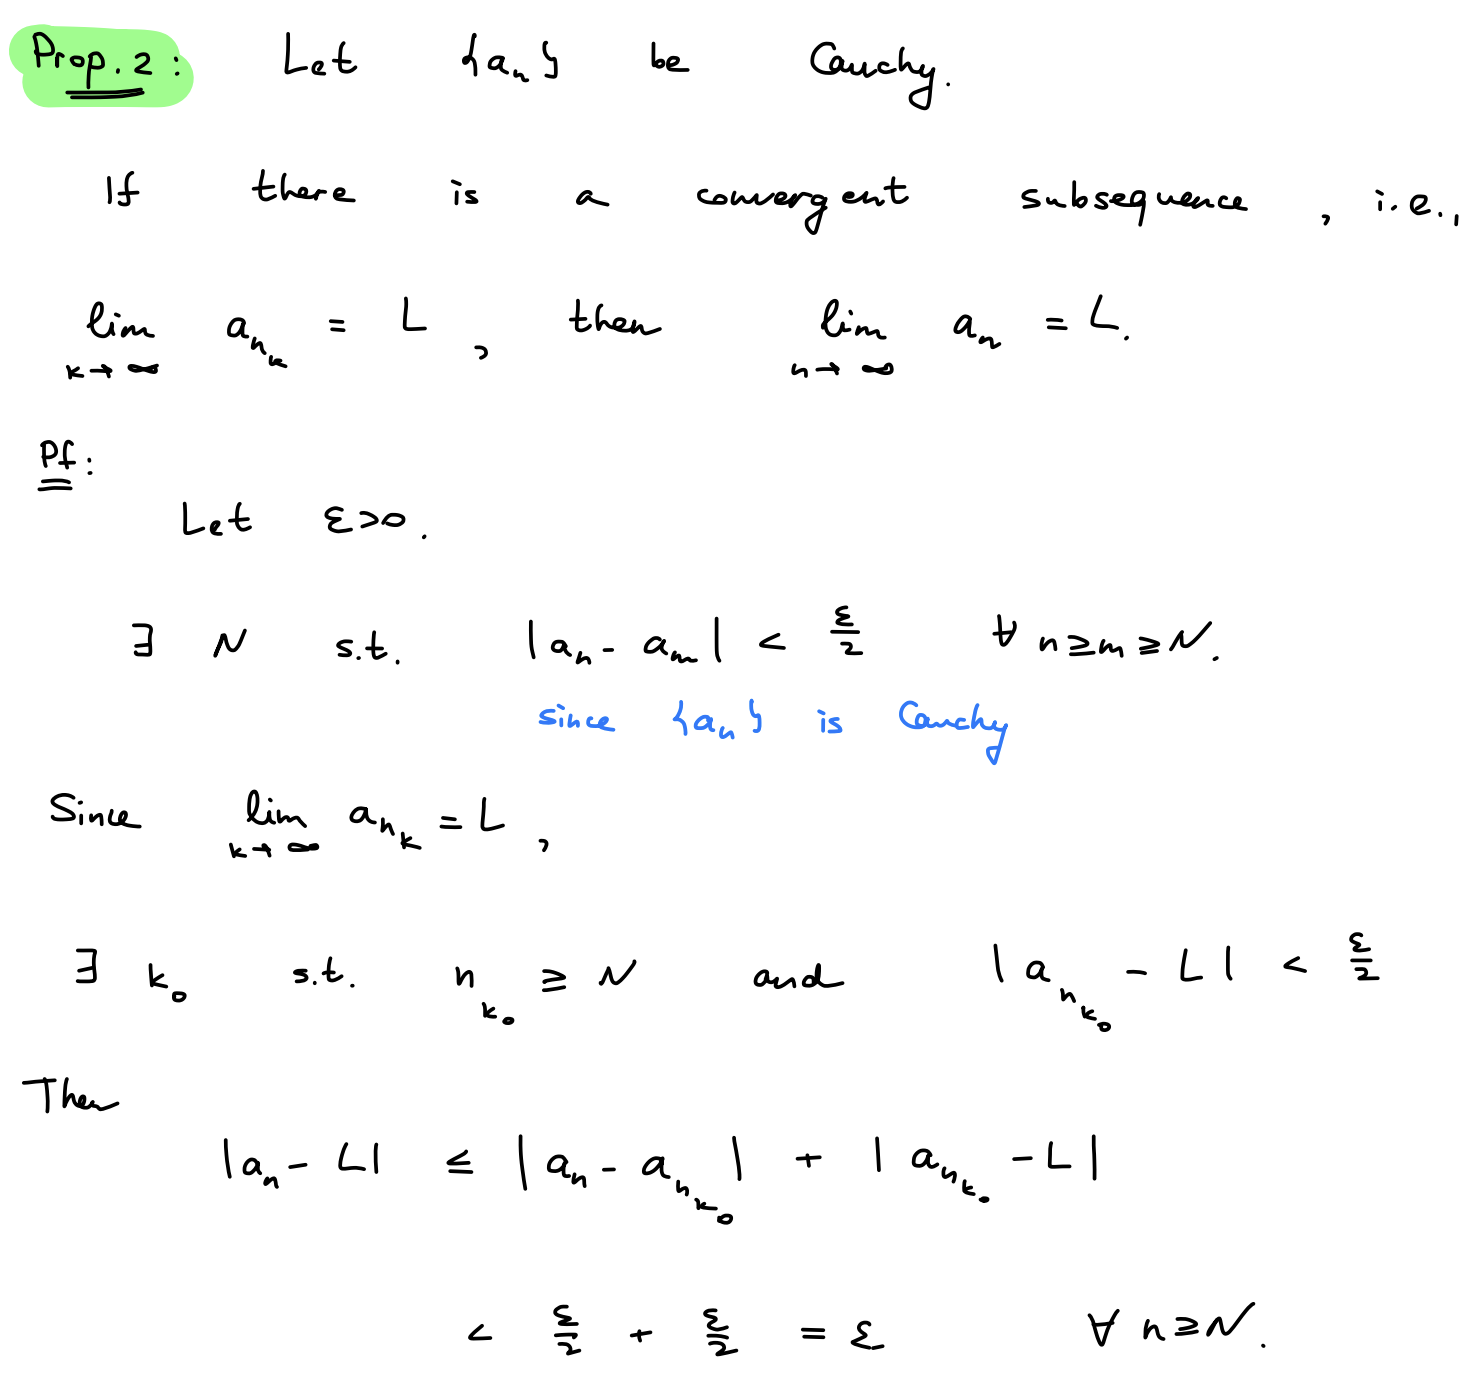 Prop. 2: Let {aₙ} be Cauchy.
If there is a convergent subsequence, i.e.,
lim_{k→∞} a_{n_k} = L, then lim_{n→∞} aₙ = L.
Pf:
Let ε>0.
∃ N s.t. |aₙ - aₘ| < ε/2 ∀ n≥m≥N.
since {aₙ} is Cauchy
Since lim_{k→∞} a_{n_k} = L,
∃ k₀ s.t. n_{k₀} ≥ N and |a_{n_{k₀}} - L| < ε/2
Then
|aₙ - L| ≤ |aₙ - a_{n_{k₀}}| + |a_{n_{k₀}} - L|
< ε/2 + ε/2 = ε ∀ n≥N.